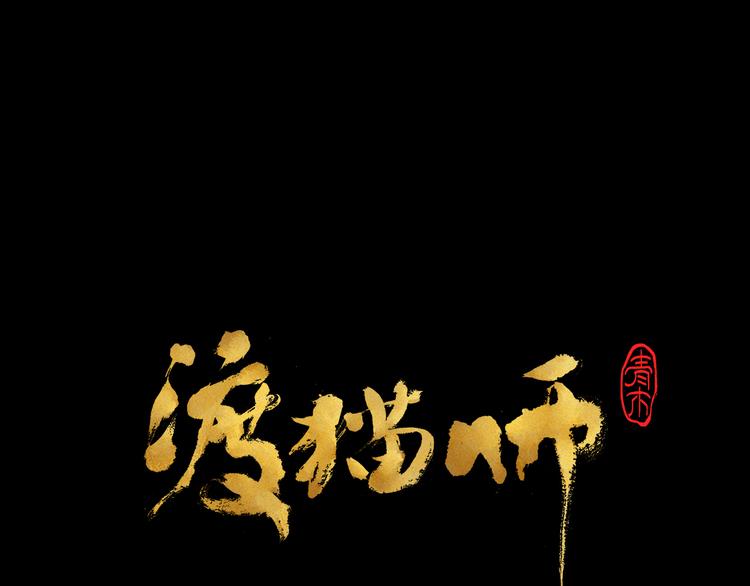 渡猫师
青木